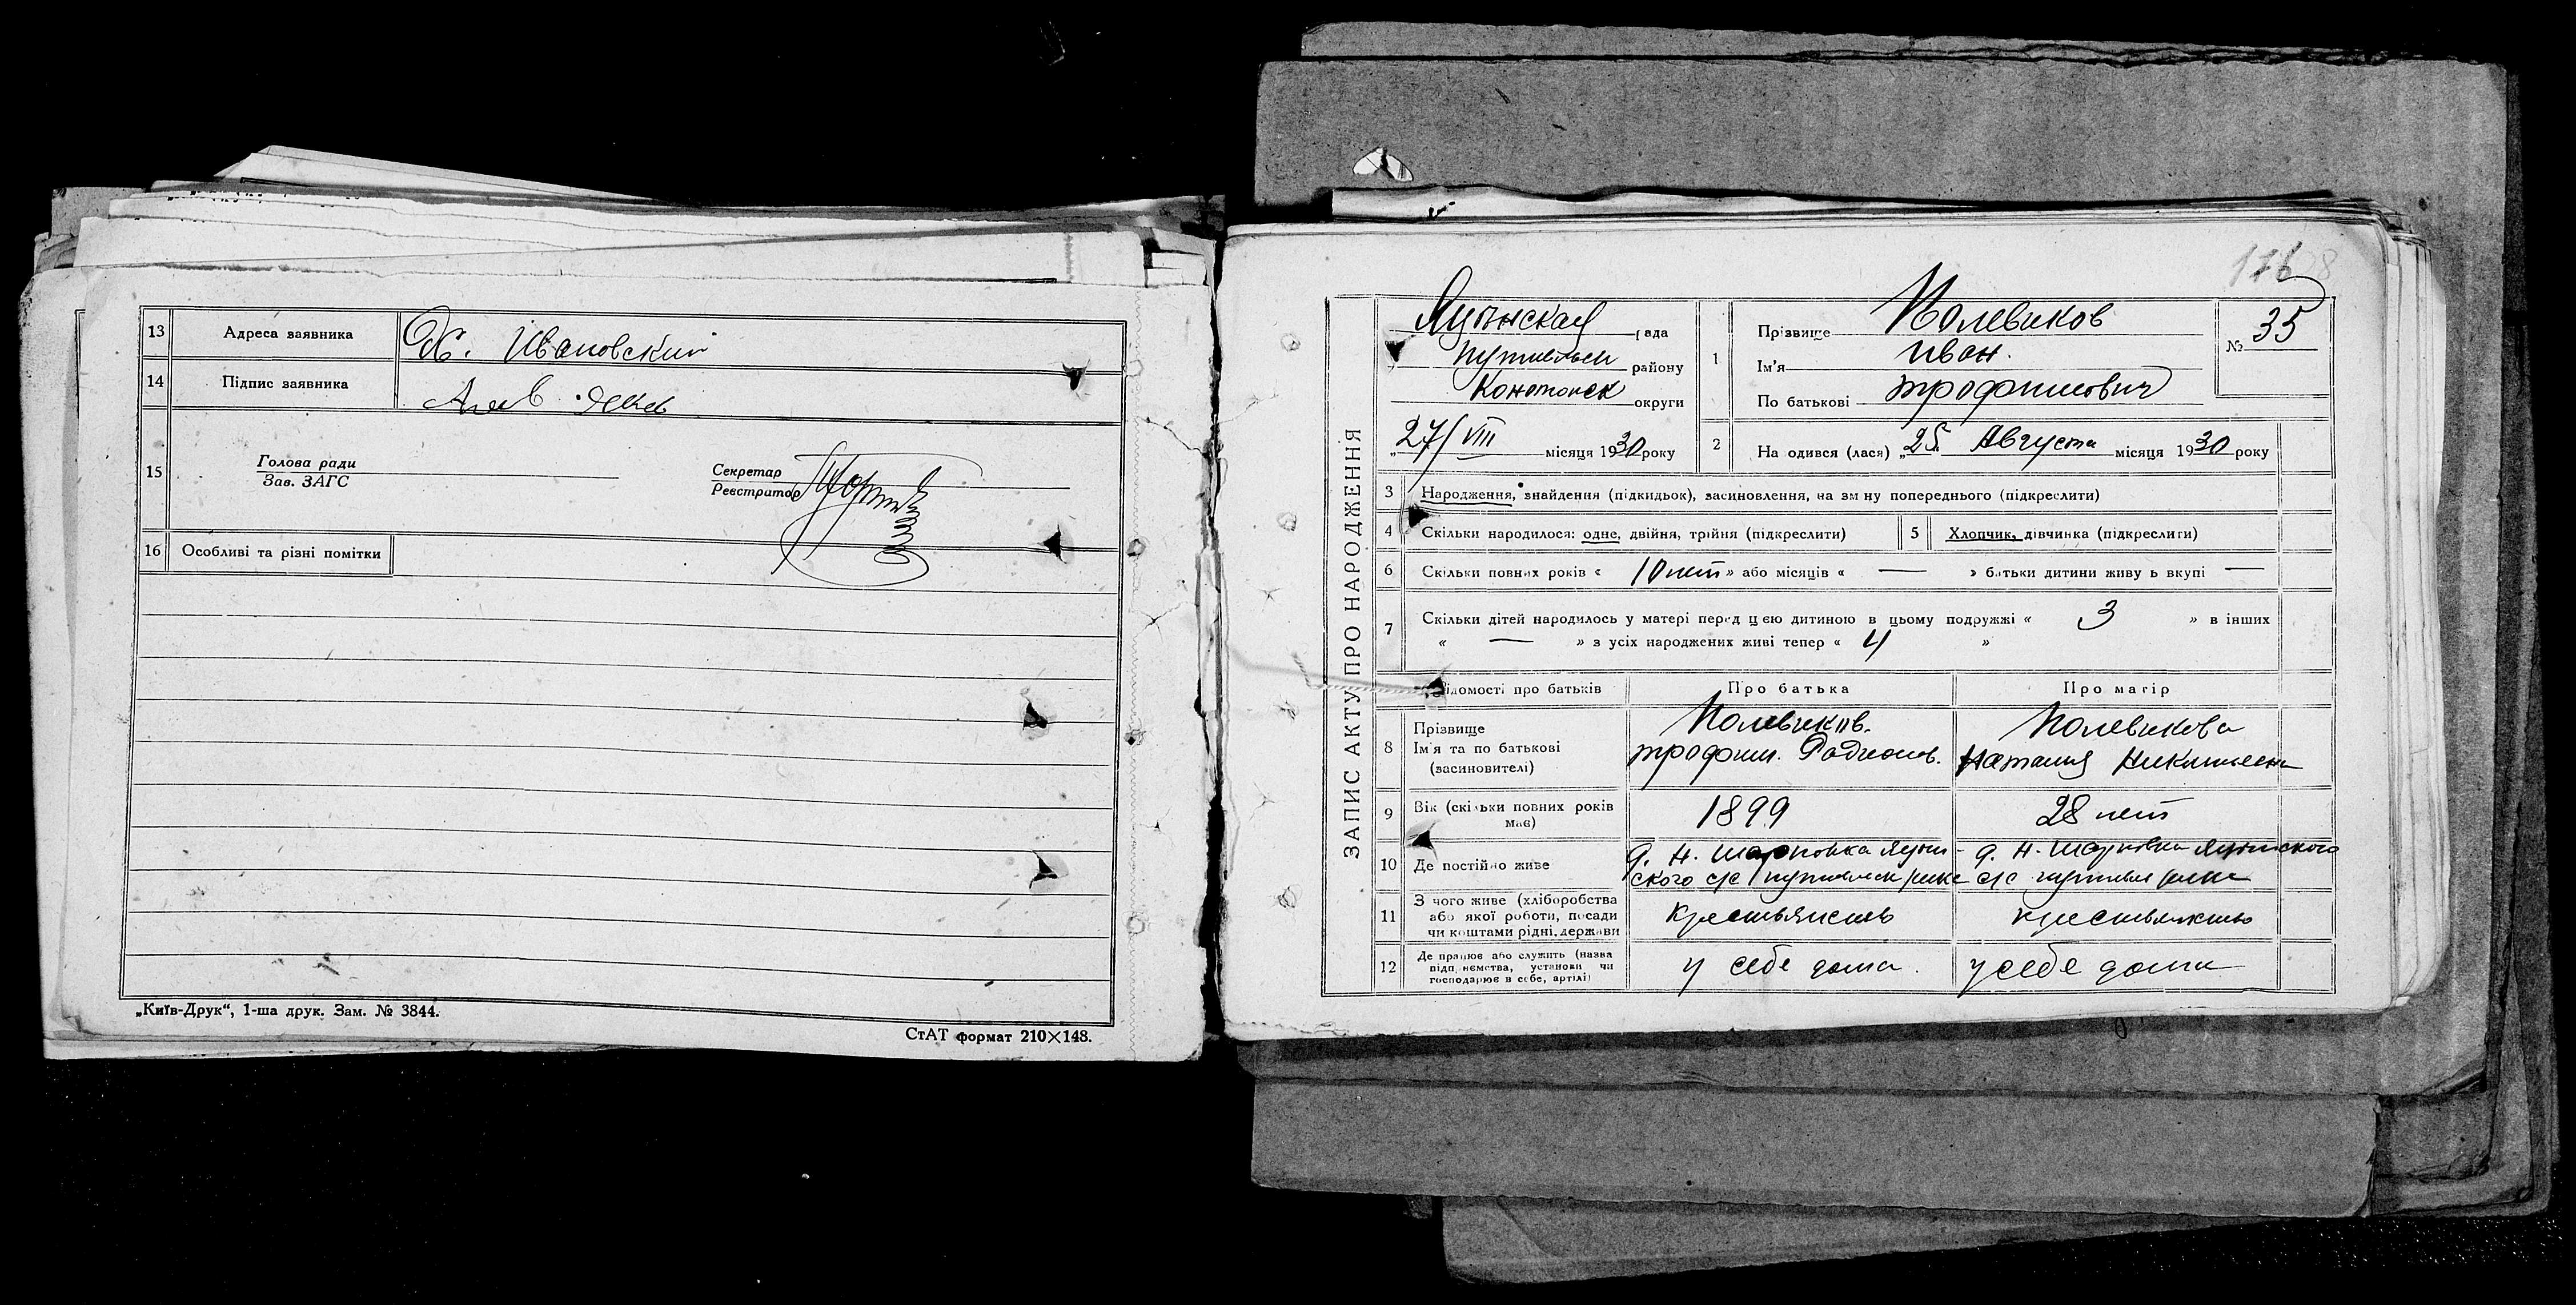 13 Адреса заявника Х. Ивановский
14 Підпис заявника
15 Голова ради
Зав. ЗАГС
Секретар
Реєстратор
16 Особливі та різні помітки
„Київ-Друк“, 1-ша друк. Зам. № 3844.
СтАТ формат 210×148.
176
ЗАПИС АКТУ ПРО НАРОДЖЕННЯ
рада
Путивльск району
Конотопск округи
„27/VIII місяця 1930 року
1 Прізвище Полевиков
Ім'я Иван.
По батькові Трофимович
№ 35
2 На одився (лася) „25“ Августа місяця 1930 року
3 Народження, знайдення (підкидьок), засиновлення, на зм ну попереднього (підкреслити)
4 Скільки народилося: одне, двійня, трійня (підкреслити) 5 Хлопчик, дівчинка (підкреслити)
6 Скільки повних років « 10 лет » або місяців « — » батьки дитини живу ь вкупі —
7 Скільки дітей народилось у матері перед цією дитиною в цьому подружжі « 3 » в інших
« — » з усіх народжених живі тепер « 4 »
Відомості про батьків Про батька Про матір
8 Прізвище
Ім'я та по батькові
(засиновителі)
Полевиков.
Трофим. Родионов.
Полевикова
Наталия Никитьевна
9 Вік (скільки повних років
має)
1899
28 лет
10 Де постійно живе
д. Н. Шарповка
ского с/с путивльск
д. Н. Шарповка
с/с
11 З чого живе (хліборобства
або якої роботи, посади
чи коштами рідні, держави
крестьянство
крестьянство
12 Де працює або служить (назва
підп. немства, установи чи
господарює в себе, артілі)
у себе дома.
у себе дома